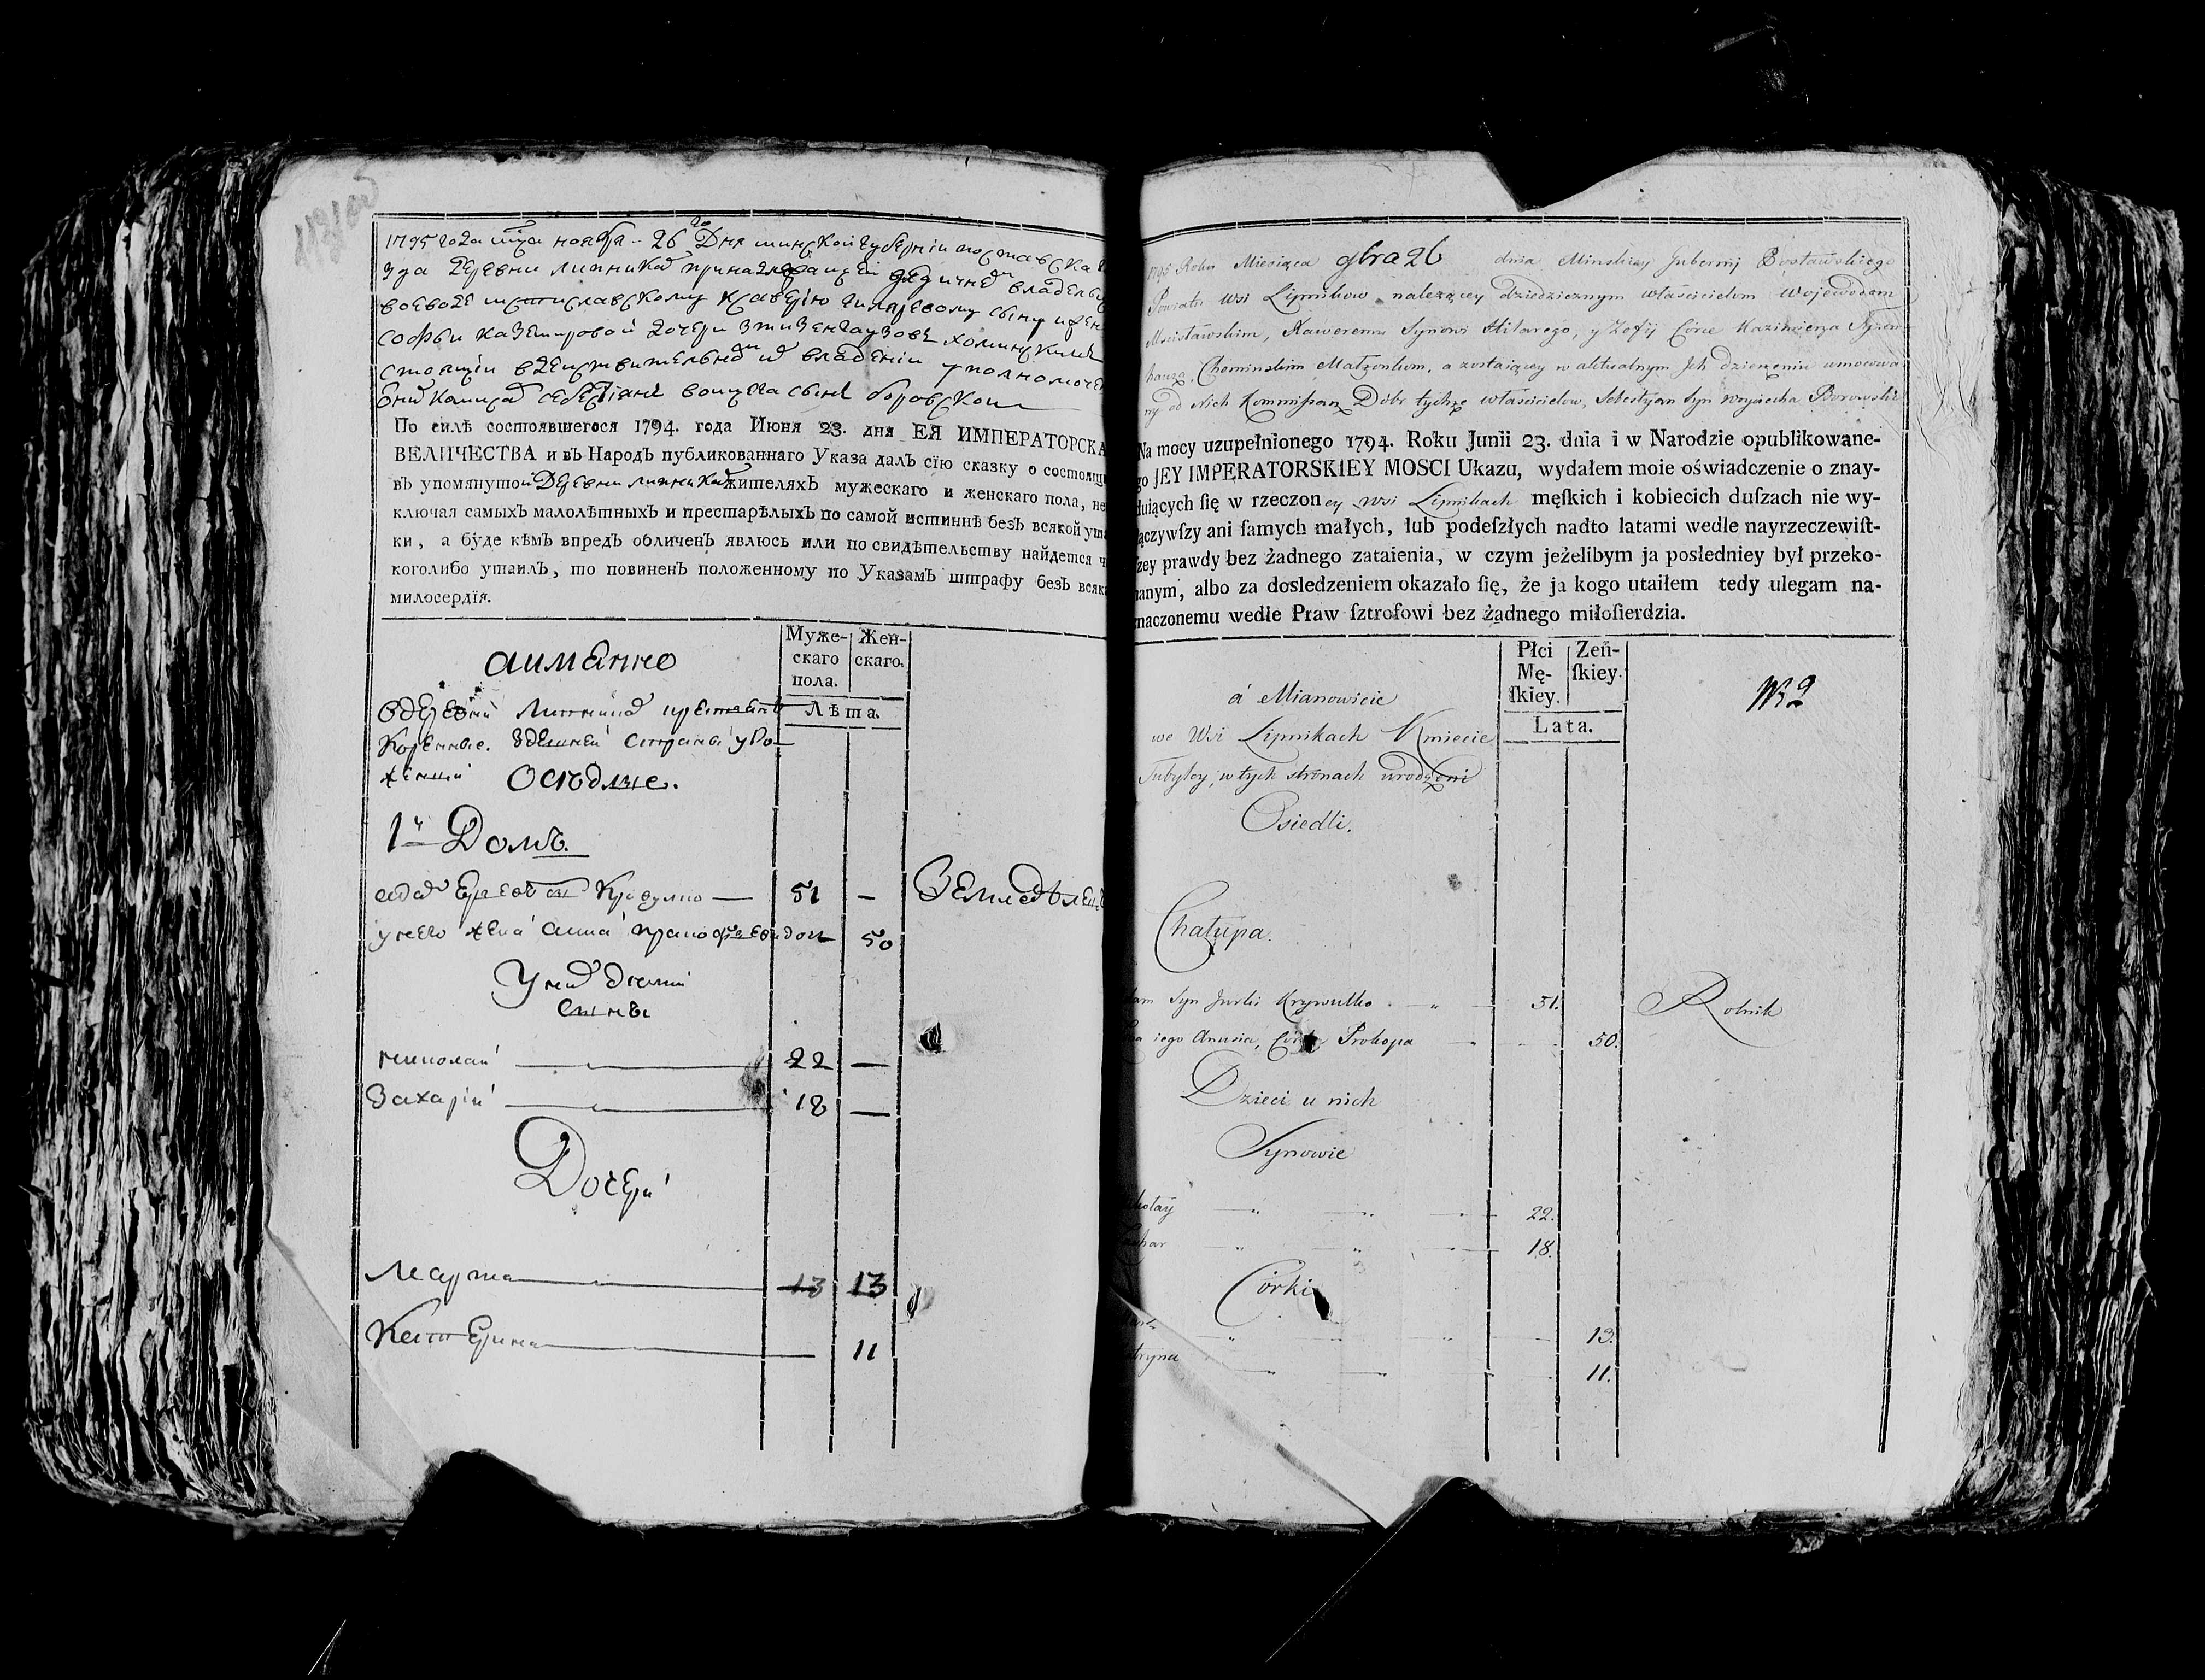 1795 года мца ноября 26 го Дня минской губернии поставска
зда деревни липника принадлежащей дедичнымъ
воеводе мстиславскому ксаверию гиляревому сыну и жене
софьи каземировой дочери з тизенгаузовъ хоминскимъ
стоящiи в действительномъ ихъ владенiи уполномоче
ими камисаръ себестiянъ войцеха сынъ боровской
По силѣ состоявшегося 1794. года Июня 23. дня ЕЯ ИМПЕРАТОРСКА
ВЕЛИЧЕСТВА и въ Народъ публикованнаго Указа далъ сїю сказку о состоящ
въ упомянутой Деревни липника жителяхъ мужескаго и женскаго пола, не
ключая самыхъ малолѣтныхъ и престарѣлыхъ по самой истиннѣ безъ всякой ута
ки, а буде кѣмъ впредь обличенъ явлюсь или по свидѣтельству найдется ч
коголибо утаилъ, то повиненъ положенному по Указамъ штрафу безъ всяк
милосердїя.
аимянно
Муже-
скаго
пола.
Жен-
скаго.
Лѣта.
в деревни Липника
Коренные. здешней страны уро
женцы Оседлые.
1й Домъ.
адамъ Криvулко — 51 — Земледѣлец
у него жена анна прокофьева дочь 50
У нихъ дети
сынъ
николай 22 —
Захарiй 18 —
Дочери
Марта 13 13
Катерина 11
1795 Roku Miesiąca 9bra 26 dnia Minskiey Gubernij Postawskiego
Powiatu wsi Lipnikow należącey dziedzicznym właścicielom Wojewodom
Mscisławskim, Xaweremu Synowi Hilarego, y Zofij Córce Kazimierza Tyzen
hauza, Chominskim Małżonkom, a zostaiącey w aktualnym Ich dzierżeniu umocowa
ny od Nich Kommissarz Dóbr tychże właścicielow, Sebestyan Syn Woyciecha Borowski
Na mocy uzupełnionego 1794. Roku Junii 23. dnia i w Narodzie opublikowane-
go JEY IMPERATORSKIEY MOSCI Ukazu, wydałem moie oświadczenie o znay-
duiących ſię w rzeczoney wsi Lipnikach męſkich i kobiecich duſzach nie wy-
ączywſzy ani ſamych małych, lub podeſzłych nadto latami wedle nayrzeczewiſt-
zey prawdy bez żadnego zataienia, w czym jeżelibym ja posledniey był przeko-
nanym, albo za dosledzeniem okazało ſię, że ja kogo utaiłem tedy ulegam na-
znaczonemu wedle Praw ſztrofowi bez żądnego miłoſierdzia.
á Mianowicie
Płci
Mę-
ſkiey.
Zeń-
ſkiey.
Lata.
N 2
we Wsi Lipnikach Kmiecie
Tubylcy, w tych stronach urodzeni
Osiedli.
Chałupa.
dam Syn Jurki Krywulko 51. Rolnik
na iego Anusia, Córka Prokopa 50.
Dzieci u nich
Synowie
kołay 22.
char 18.
Córki
13.
atryna 11.